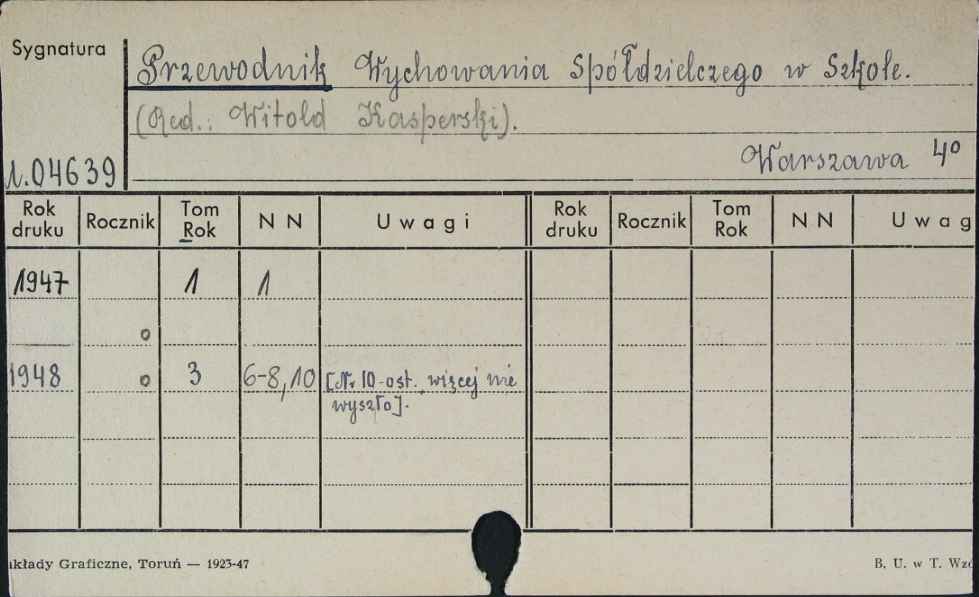 Sygnatura
Przewodnik Wychowania Spółdzielczego w Szkole.
(Red.: Witold Kasperski).
Warszawa 4º
04639
Rok druku Rocznik Tom Rok N N Uwagi Rok druku Rocznik Tom Rok N N Uwag
1947 1 1
o
1948 o 3 6-8,10 [Nr 10-ost. więcej nie
wyszło].
kłady Graficzne, Toruń — 1923-47 B. U. w T. Wzó